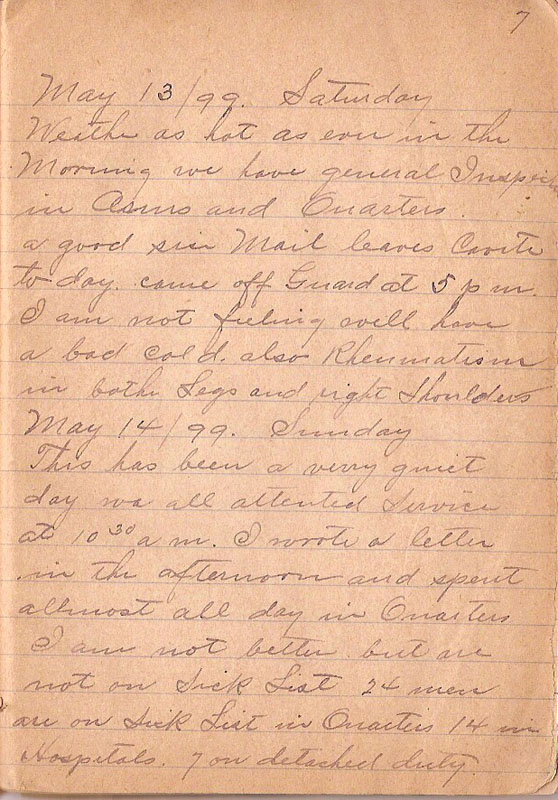 7
May 13/99. Saturday
Weathe as hot as ever in the
Morning we have general Inspec
in Arms and Quarters.
a good sise Mail leaves Cavite
to day. came off Guard at 5 p m.
I am not feeling well have
a bad cold. also Rheumatism
in bothe Legs and right Shoulders
May 14/99. Sunday
This has been a verry quiet
day wa all attented Service
at 10 30 a m. I wrote a letter
in the afternoon and spent
allmost all day in Quarters
I am not better but are
not on Sick List 24 men
are on Sick List in Quarters 14 in
Hospitals. 7 on detached duty.